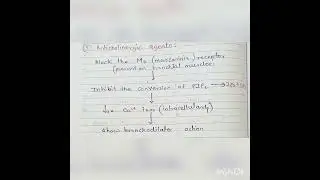 Anticholinergic agents:
Block the M3 (muscarinic) receptor
(present on bronchial muscles)
Inhibit the conversion of PIP2
Ca++ (intracellularly)
show bronchodilator action